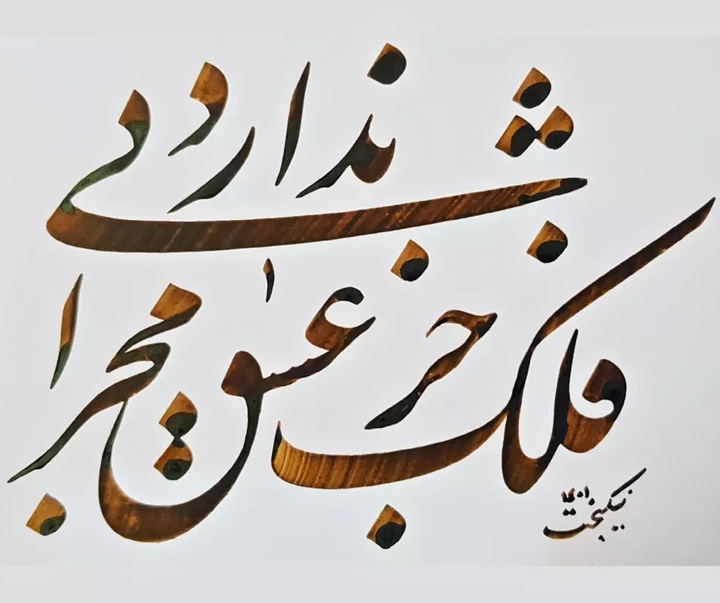 فلک جز عشق محرابی ندارد
نیکبخت ۱۴۰۱